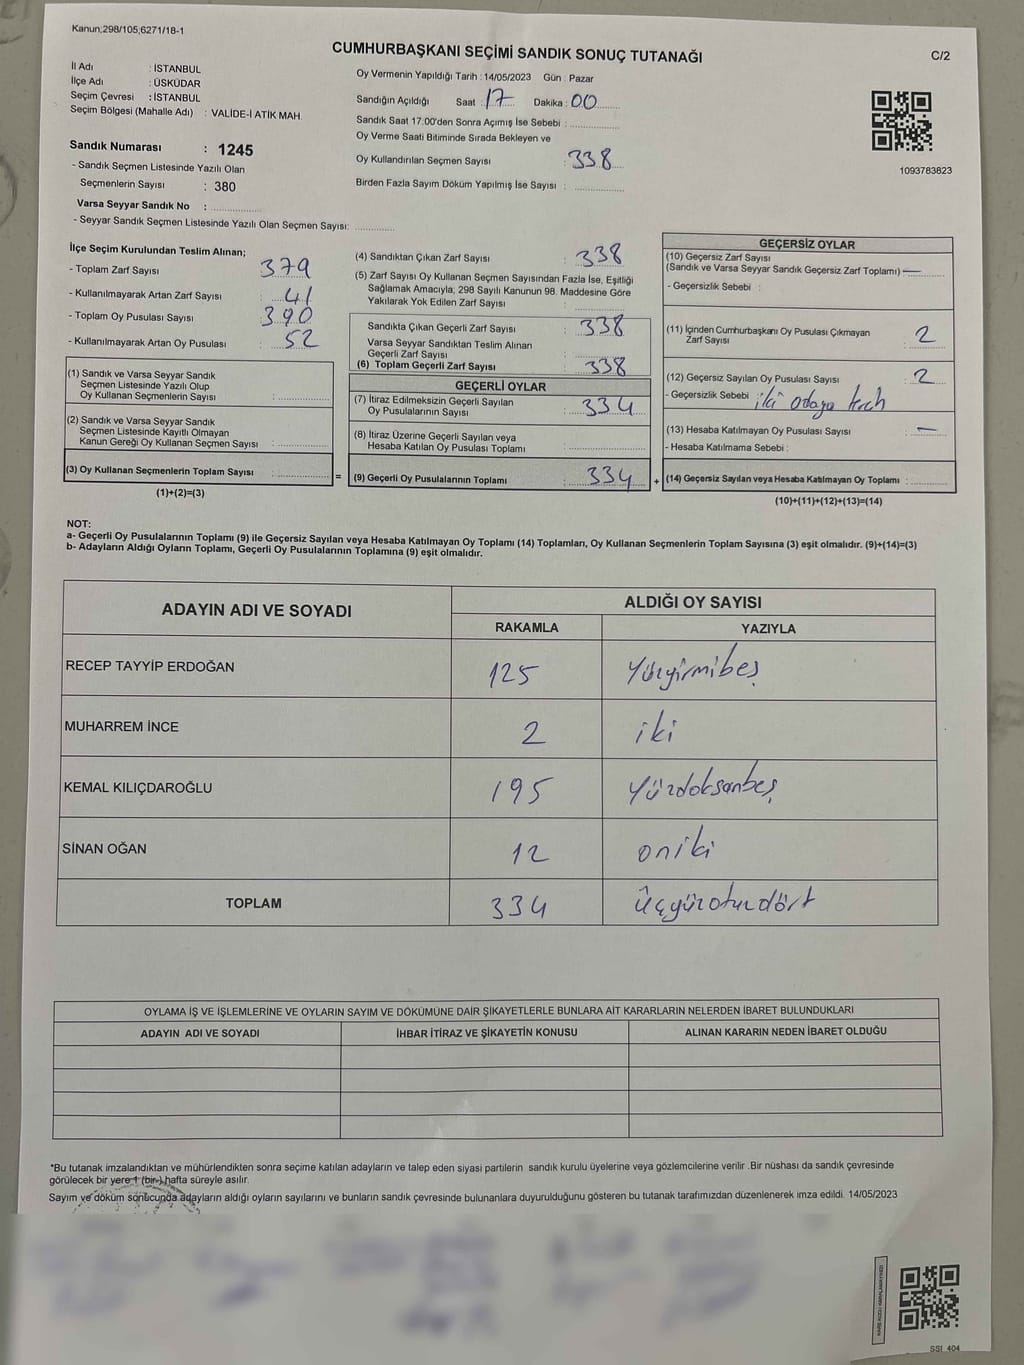 Kanun;298/105;6271/18-1
CUMHURBAŞKANI SEÇİMİ SANDIK SONUÇ TUTANAĞI
C/2
İl Adı : İSTANBUL
İlçe Adı : ÜSKÜDAR
Seçim Çevresi : İSTANBUL
Seçim Bölgesi (Mahalle Adı) : VALİDE-İ ATİK MAH.
Oy Vermenin Yapıldığı Tarih : 14/05/2023 Gün : Pazar
Sandığın Açıldığı Saat : 17 Dakika : 00
Sandık Saat 17:00'den Sonra Açımış İse Sebebi :
Oy Verme Saati Bitiminde Sırada Bekleyen ve
Oy Kullandırılan Seçmen Sayısı : 338
Birden Fazla Sayım Döküm Yapılmış İse Sayısı :
1093783823
Sandık Numarası : 1245
- Sandık Seçmen Listesinde Yazılı Olan
Seçmenlerin Sayısı : 380
Varsa Seyyar Sandık No :
- Seyyar Sandık Seçmen Listesinde Yazılı Olan Seçmen Sayısı:
İlçe Seçim Kurulundan Teslim Alınan;
- Toplam Zarf Sayısı : 379
- Kullanılmayarak Artan Zarf Sayısı : 41
- Toplam Oy Pusulası Sayısı : 390
- Kullanılmayarak Artan Oy Pusulası : 52
(1) Sandık ve Varsa Seyyar Sandık
Seçmen Listesinde Yazılı Olup
Oy Kullanan Seçmenlerin Sayısı :
(2) Sandık ve Varsa Seyyar Sandık
Seçmen Listesinde Kayıtlı Olmayan
Kanun Gereği Oy Kullanan Seçmen Sayısı :
(3) Oy Kullanan Seçmenlerin Toplam Sayısı :
(1)+(2)=(3)
=
(4) Sandıktan Çıkan Zarf Sayısı : 338
(5) Zarf Sayısı Oy Kullanan Seçmen Sayısından Fazla İse, Eşitliği
Sağlamak Amacıyla; 298 Sayılı Kanunun 98. Maddesine Göre
Yakılarak Yok Edilen Zarf Sayısı :
Sandıkta Çıkan Geçerli Zarf Sayısı : 338
Varsa Seyyar Sandıktan Teslim Alınan
Geçerli Zarf Sayısı :
(6) Toplam Geçerli Zarf Sayısı : 338
GEÇERLİ OYLAR
(7) İtiraz Edilmeksizin Geçerli Sayılan
Oy Pusulalarının Sayısı : 334
(8) İtiraz Üzerine Geçerli Sayılan veya
Hesaba Katılan Oy Pusulası Toplamı :
(9) Geçerli Oy Pusulalarının Toplamı : 334
+
GEÇERSİZ OYLAR
(10) Geçersiz Zarf Sayısı
(Sandık ve Varsa Seyyar Sandık Geçersiz Zarf Toplamı) : —
- Geçersizlik Sebebi :
(11) İçinden Cumhurbaşkanı Oy Pusulası Çıkmayan
Zarf Sayısı : 2
(12) Geçersiz Sayılan Oy Pusulası Sayısı : 2
- Geçersizlik Sebebi : iki
(13) Hesaba Katılmayan Oy Pusulası Sayısı : —
- Hesaba Katılmama Sebebi :
(14) Geçersiz Sayılan veya Hesaba Katılmayan Oy Toplamı :
(10)+(11)+(12)+(13)=(14)
NOT:
a- Geçerli Oy Pusulalarının Toplamı (9) ile Geçersiz Sayılan veya Hesaba Katılmayan Oy Toplamı (14) Toplamları, Oy Kullanan Seçmenlerin Toplam Sayısına (3) eşit olmalıdır. (9)+(14)=(3)
b- Adayların Aldığı Oyların Toplamı, Geçerli Oy Pusulalarının Toplamına (9) eşit olmalıdır.
ADAYIN ADI VE SOYADI
ALDIĞI OY SAYISI
RAKAMLA YAZIYLA
RECEP TAYYİP ERDOĞAN 125 Yüzyirmibeş
MUHARREM İNCE 2 iki
KEMAL KILIÇDAROĞLU 195 Yüzdoksanbeş
SİNAN OĞAN 12 oniki
TOPLAM 334 üçyüzotuzdört
OYLAMA İŞ VE İŞLEMLERİNE VE OYLARIN SAYIM VE DÖKÜMÜNE DAİR ŞİKAYETLERLE BUNLARA AİT KARARLARIN NELERDEN İBARET BULUNDUKLARI
ADAYIN ADI VE SOYADI İHBAR İTİRAZ VE ŞİKAYETİN KONUSU ALINAN KARARIN NEDEN İBARET OLDUĞU
*Bu tutanak imzalandıktan ve mühürlendikten sonra seçime katılan adayların ve talep eden siyasi partilerin sandık kurulu üyelerine veya gözlemcilerine verilir .Bir nüshası da sandık çevresinde
görülecek bir yere 1 (bir-) hafta süreyle asılır.
Sayım ve döküm sonucunda adayların aldığı oyların sayılarını ve bunların sandık çevresinde bulunanlara duyurulduğunu gösteren bu tutanak tarafımızdan düzenlenerek imza edildi. 14/05/2023
SSI_404